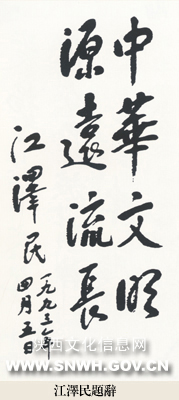 中華文明
源遠流長
江澤民
一九九三年
四月五日
陕西文化信息网
WWW.SNWH.GOV.CN
江澤民題辭